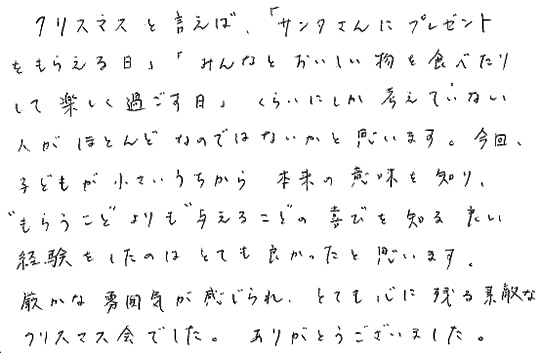 クリスマスと言えば、「サンタさんにプレゼント
をもらえる日」「みんなとおいしい物を食べたり
して楽しく過ごす日」くらいにしか考えていない
人がほとんどなのではないかと思います。今回、
子どもが小さいうちから本来の意味を知り、
"もらうこと"よりも"与えること"の喜びを知る良い
経験をしたのはとても良かったと思います。
厳かな雰囲気が感じられ、とても心に残る素敵な
クリスマス会でした。ありがとうございました。